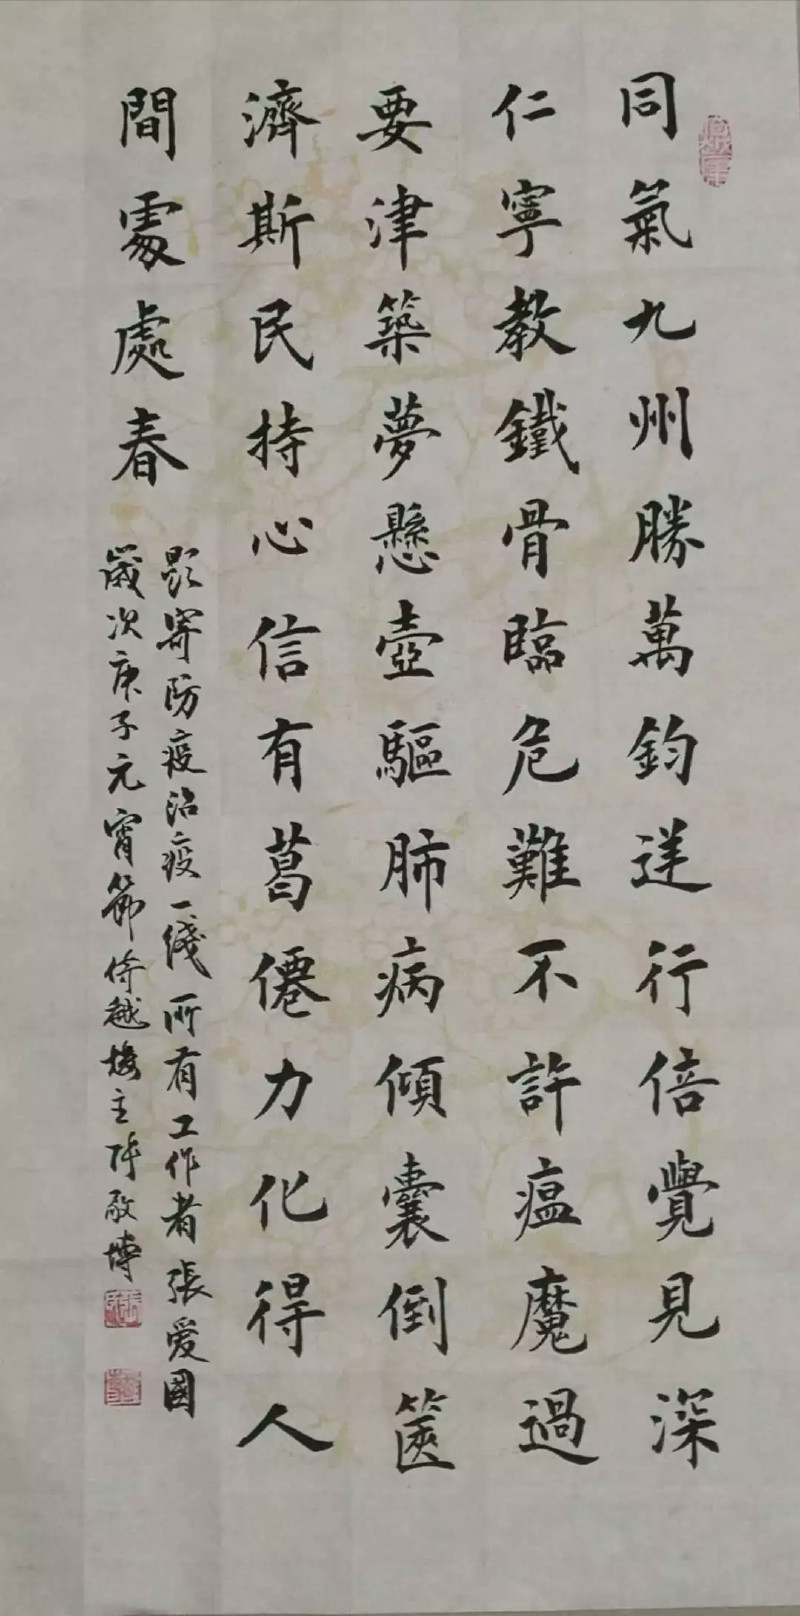 同氣九州勝萬鈞逆行倍覺見深
仁寧教鐵骨臨危難不許瘟魔過
要津築夢懸壺驅肺病傾囊倒篋
濟斯民持心信有葛僊力化得人
間處處春
題寄防疫治疫一綫所有工作者張愛國
歲次庚子元宵節倚越樓主敬博